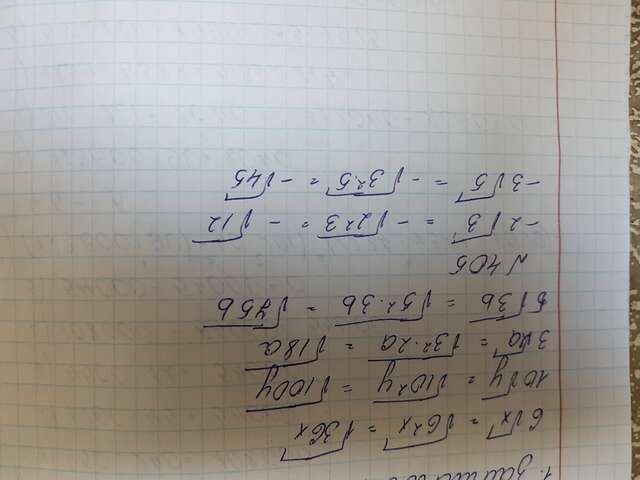 6√x = √6²x = √36x
10√y = √10²y = √100y
3√2a = √3²·2a = √18a
5√3b = √5²·3b = √75b
N 405
-2√3 = -√2²3 = -√12
-3√5 = -√3²·5 = -√45